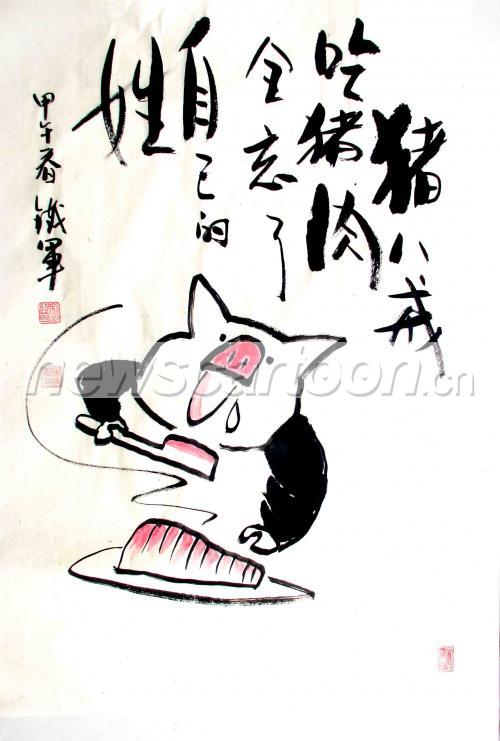 猪八戒
吃猪肉
全忘了
自己的
姓
甲午春 铁军
newscartoon.cn